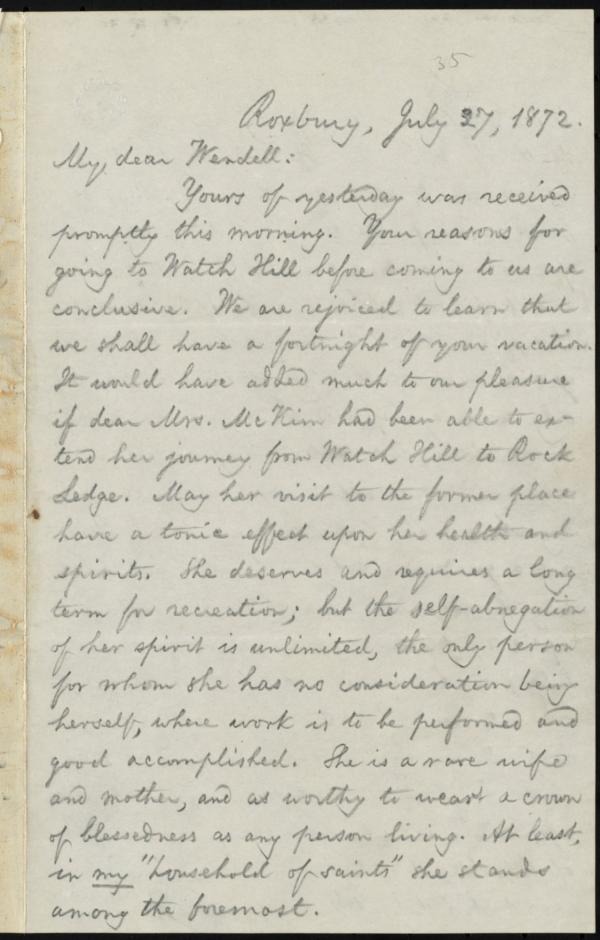 35
Roxbury, July 27, 1872.
My dear Wendell:
Yours of yesterday was received
promptly this morning. Your reasons for
going to Watch Hill before coming to us are
conclusive. We are rejoiced to learn that
we shall have a fortnight of your vacation.
It would have added much to our pleasure
if dear Mrs. McKim had been able to ex-
tend her journey from Watch Hill to Rock
Ledge. May her visit to the former place
have a tonic effect upon her health and
spirits. She deserves and requires a long
term for recreation; but the self-abnegation
of her spirit is unlimited, the only person
for whom she has no consideration being
herself, where work is to be performed and
good accomplished. She is a rare wife
and mother, and as worthy to wear a crown
of blessedness as any person living. At least,
in my "household of saints" she stands
among the foremost.